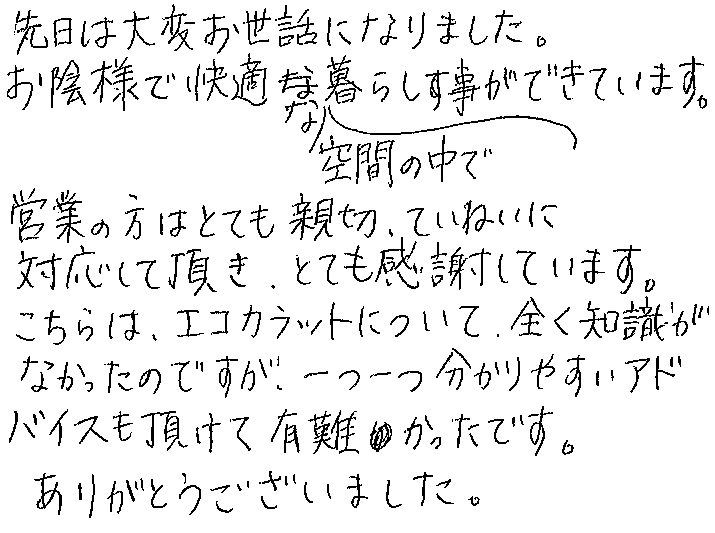 先日は大変お世話になりました。
お陰様で快適な暮らしす事ができています。
な
空間の中で
営業の方はとても親切、ていねいに
対応して頂き、とても感謝しています。
こちらは、エコカラットについて、全く知識が
なかったのですが、一つ一つ分かりやすいアド
バイスも頂けて有難かったです。
ありがとうございました。